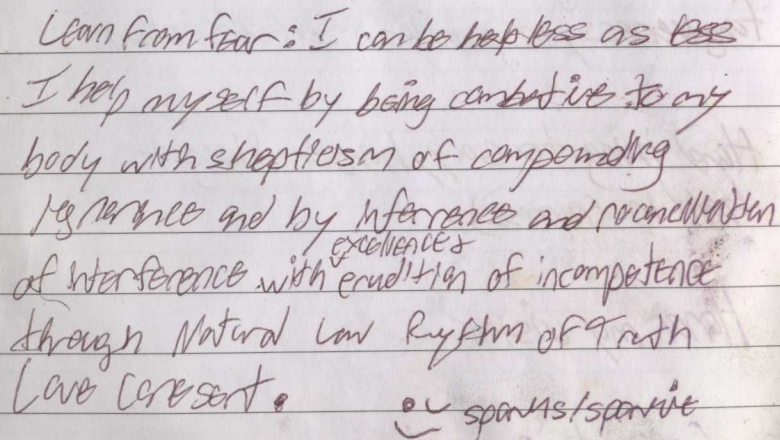 Learn from fear: I can be helpless as less
I help myself by being combative to my
body with skepticism of compounding
ignorance and by inference and reconciliation
excellence &
of interference with erudition of incompetence
through Natural Law Rhythm of Truth
Love Consent.